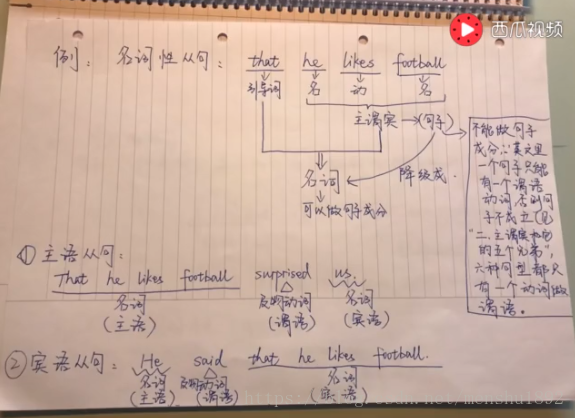 西瓜视频
例: 名词性从句: that he likes football
引导词 名 动 名
主谓宾→(句子)
名词 降级成.
可以做句子成分
不能做句子
成分∵英文里
一个句子只能
有一个谓语
动词否则句
子不成立(见
"二.主谓宾和它
的五个兄弟",
六种句型都只
有一个动词做
谓语。
① 主语从句:
That he likes football surprised us.
名词 及物动词 名词
(主语) (谓语) (宾语)
② 宾语从句: He said that he likes football.
名词 及物动词 名词
(主语) (谓语) (宾语)